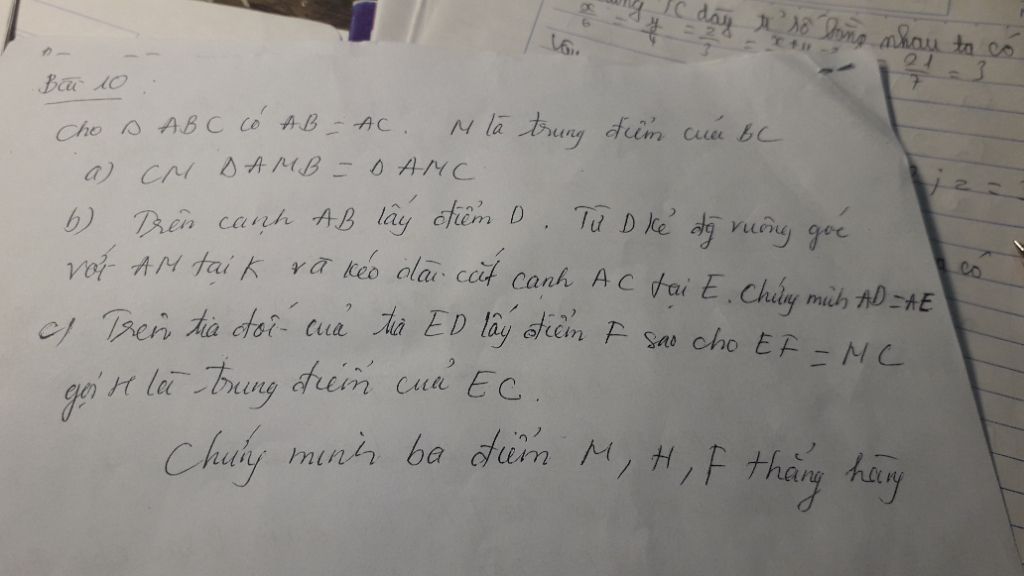 ỉ số bằng nhau ta có
x/6 = y/4 = z/3 =
21/7 = 3
; z =
có
Bài 10 :
Cho Δ ABC có AB = AC. M là trung điểm của BC
a) CM Δ AMB = Δ AMC
b) Trên cạnh AB lấy điểm D. Từ D kẻ đg vuông góc
với AM tại K và kéo dài cắt cạnh AC tại E. Chứng minh AD = AE
c) Trên tia đối của tia ED lấy điểm F sao cho EF = MC
gọi H là trung điểm của EC.
Chứng minh ba điểm M, H, F thẳng hàng